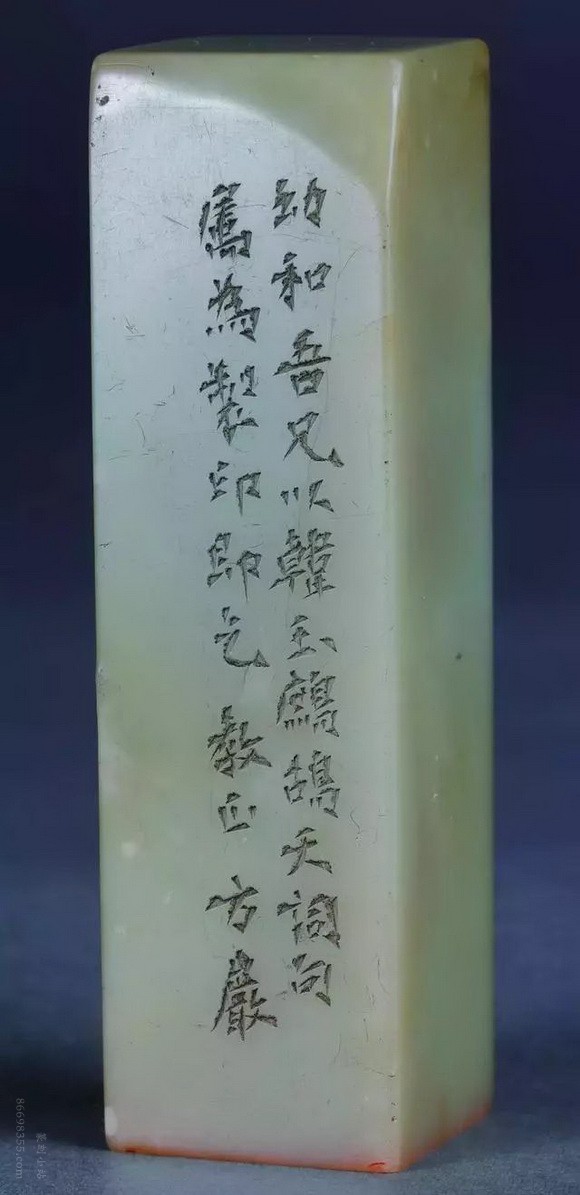 幼和吾兄以韓玉鷓鴣天詞句
屬為製印即乞 教正 方巖
86698355.com